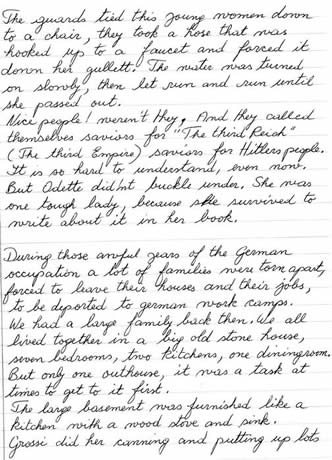 The guards tied this young women down
to a chair, they took a hose that was
hooked up to a faucet and forced it
down her gullett. The water was turned
on slowly, then let run and run until
she passed out.
Nice people! weren't they, And they called
themselves saviors for "The third Reich"
(The third Empire) saviors for Hitlers people.
It is so hard to understand, even now.
But Odette did'nt buckle under. She was
one tough lady, because she survived to
write about it in her book.
During those awful years of the German
occupation a lot of families were torn apart,
forced to leave their houses and their jobs,
to be deported to german work camps.
We had a large family back then. We all
lived together in a big old stone house,
seven bedrooms, two kitchens, one diningroom.
But only one outhouse, it was a task at
times to get to it first.
The large basement was furnished like a
kitchen with a wood stove and sink.
Grossi did her canning and putting up lots